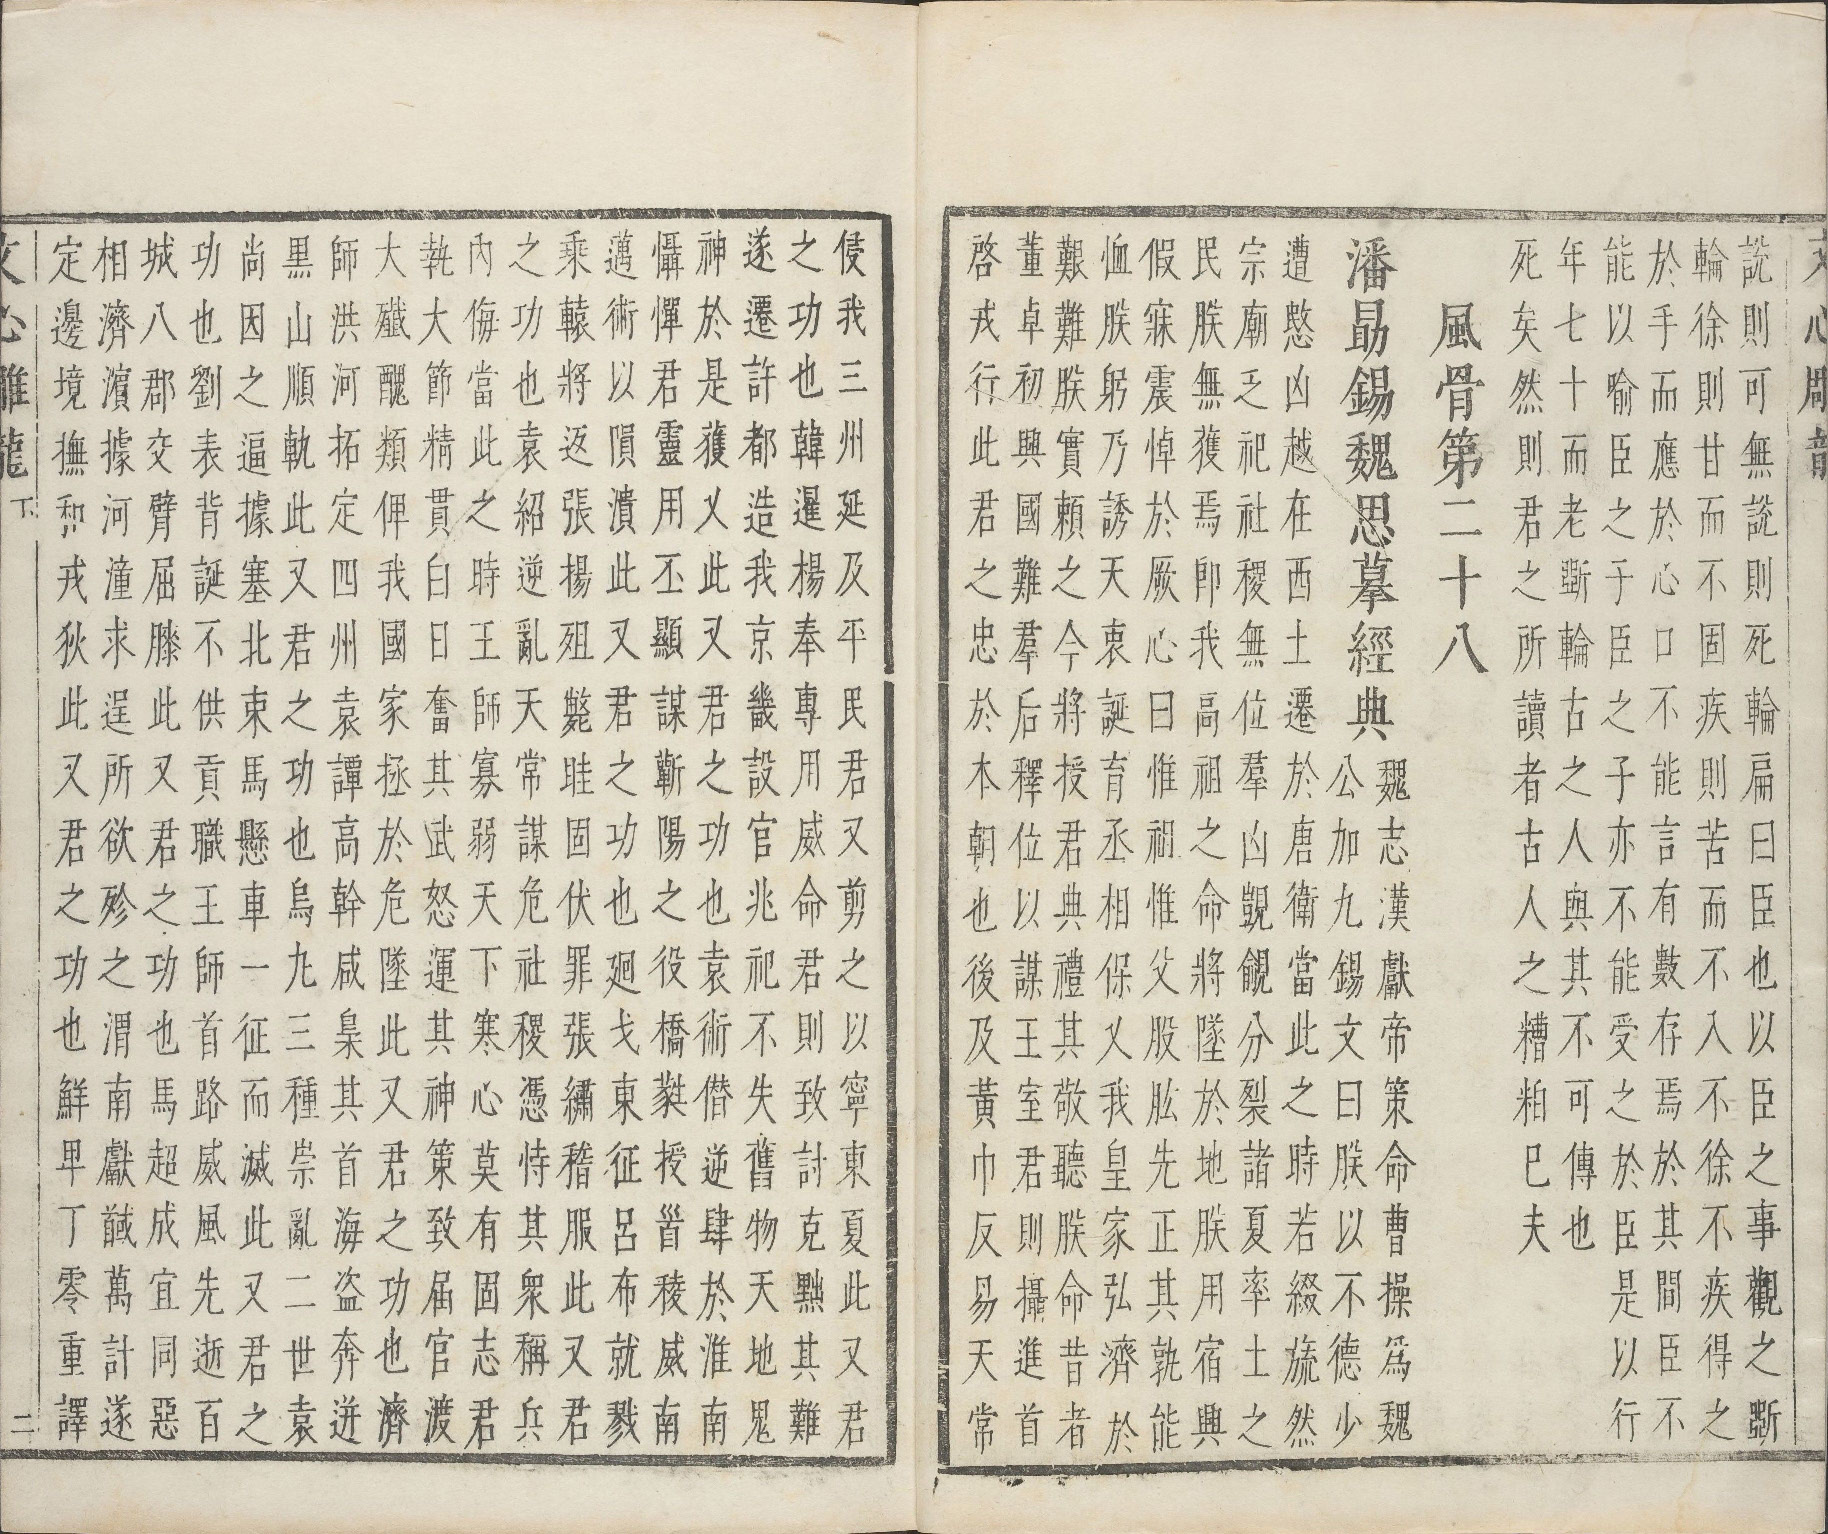 文心雕龍
說則可無說則死輪扁曰臣也以臣之事觀之斲
輪徐則甘而不固疾則苦而不入不徐不疾得之
於手而應於心口不能言有數存焉於其間臣不
能以喻臣之子臣之子亦不能受之於臣是以行
年七十而老斲輪古之人與其不可傳也
死矣然則君之所讀者古人之糟粕已夫
風骨第二十八
潘勗錫魏思摹經典
魏志漢獻帝策命曹操爲魏
公加九錫文曰朕以不德少
遭愍凶越在西土遷於唐衛當此之時若綴旒然
宗廟乏祀社稷無位羣凶覬覦分裂諸夏率土之
民朕無獲焉卽我高祖之命將墜於地朕用宿興
假寐震悼於厥心曰惟祖惟父股肱先正其孰能
恤朕躬乃誘天衷誕育丞相保乂我皇家弘濟於
艱難朕實賴之今將授君典禮其敬聽朕命昔者
董卓初興國難羣后釋位以謀王室君則攝進首
啓戎行此君之忠於本朝也後及黃巾反易天常
侵我三州延及平民君又剪之以寧東夏此又君
之功也韓暹楊奉專用威命君則致討克黜其難
遂遷許都造我京畿設官兆祀不失舊物天地鬼
神於是獲乂此又君之功也袁術僭逆肆於淮南
懾憚君靈用丕顯謀蘄陽之役橋蕤授首稜威南
邁術以隕潰此又君之功也廻戈東征呂布就戮
乘轅將返張揚殂斃眭固伏罪張繡稽服此又君
之功也袁紹逆亂天常謀危社稷憑恃其衆稱兵
內侮當此之時王師寡弱天下寒心莫有固志君
執大節精貫白日奮其武怒運其神策致屆官渡
大殲醜類俾我國家拯於危墜此又君之功也濟
師洪河拓定四州袁譚高幹咸梟其首海盜奔迸
黑山順軌此又君之功也烏九三種崇亂二世袁
尚因之逼據塞北束馬懸車一征而滅此又君之
功也劉表背誕不供貢職王師首路威風先逝百
城八郡交臂屈膝此又君之功也馬超成宜同惡
相濟濱據河潼求逞所欲殄之渭南獻馘萬計遂
定邊境撫和戎狄此又君之功也鮮卑丁零重譯
文心雕龍 下 二